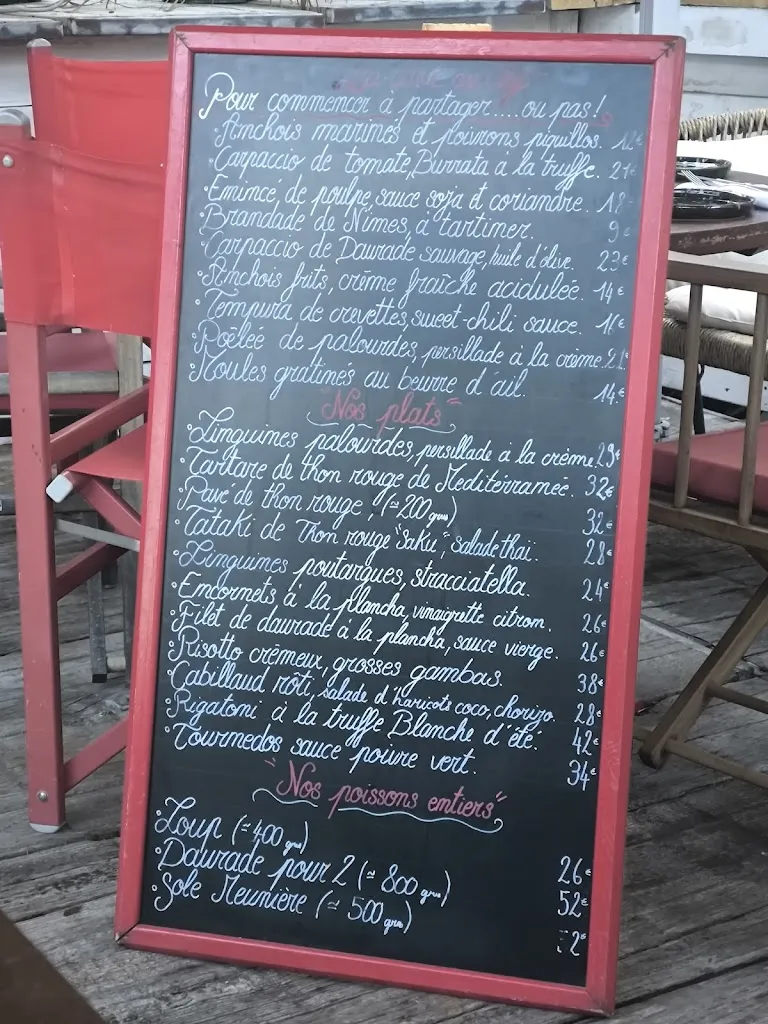 Pour commencer à partager....ou pas!
·Anchois marinés et poivrons piquillos. 12€
·Carpaccio de tomate, Burrata à la truffe. 21€
·Emincé de poulpe, sauce soja et coriandre. 18
·Brandade de Nîmes, à tartiner. 9€
·Carpaccio de Daurade sauvage, huile d'olive. 23€
·Anchois frits, crème fraîche acidulée. 14€
·Tempura de crevettes, sweet-chili sauce.
·Poêlée de palourdes, persillade à la crème.
·Moules gratinés au beurre d'ail. 14€
"Nos plats"
·Linguines palourdes, persillade à la crème 29€
·Tartare de thon rouge de Mediterranée. 32€
·Pavé de thon rouge, (≈200 grs) 32€
·Tataki de Thon rouge "Saku", salade thaï. 28€
·Linguines poutargues, stracciatella. 24€
·Encornets à la plancha, vinaigrette citron. 26€
·Filet de daurade à la plancha, sauce vierge. 26€
·Risotto crémeux, grosses gambas. 38€
·Cabillaud rôti, salade d'haricots coco, chorizo. 28€
·Rigatoni à la truffe Blanche d'été. 42€
·Tournedos sauce poivre vert. 34€
"Nos poissons entiers"
·Loup (≈400 grs) 26€
·Daurade pour 2 (≈ 800 grs) 52€
·Sole Meunière (≈ 500 grs)